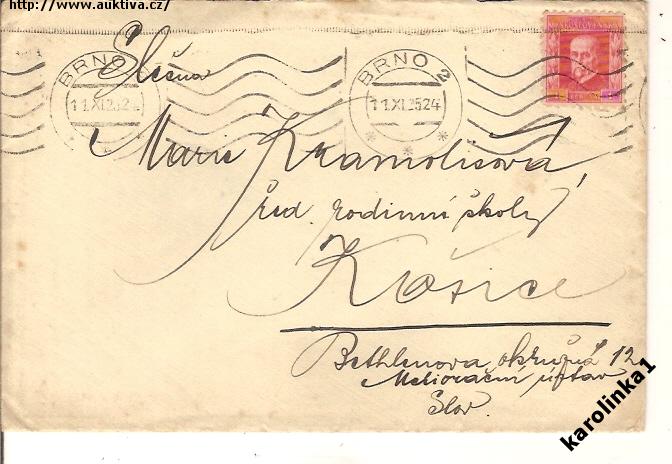 http://www.auktiva.cz/
BRNO 2
11.XI.25.24
BRNO 2
11.XI.25.24
Slečna
Marie Kramolišová,
řed. rodinné školy
Košice
Bethlenova okružná 12
Meliorační ústav
Slov.
karolinka1